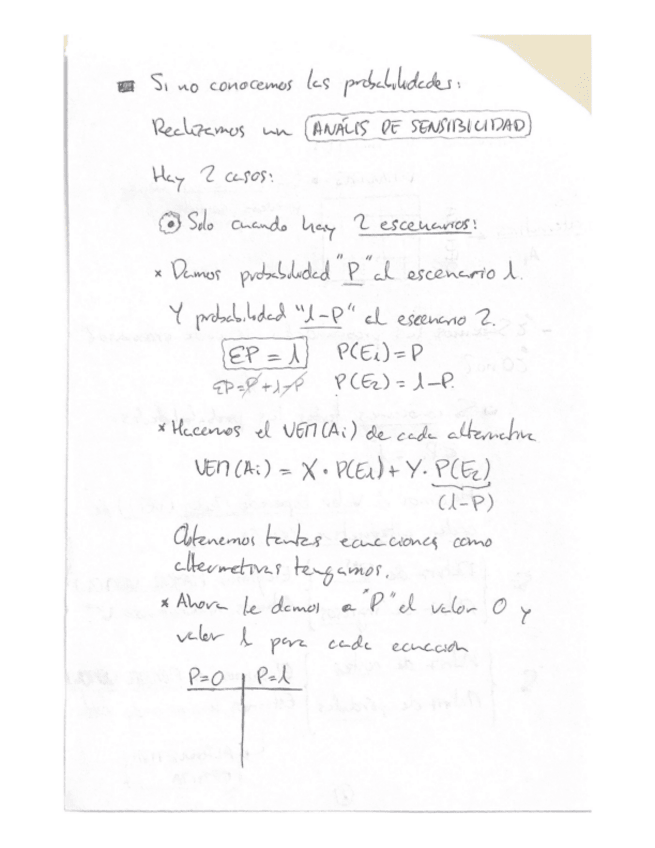 Si no conocemos las probabilidades:
Realizamos un ANÁLIS DE SENSIBILIDAD
Hay 2 casos:
Solo cuando hay 2 escenarios:
* Damos probabilidad "P" al escenario 1.
Y probabilidad "1-P" al escenario 2.
ΣP = 1 P(E1) = P
ΣP = P + 1 - P P(E2) = 1-P.
* Hacemos el VEM(Ai) de cada alternativa
VEM(Ai) = X · P(E1) + Y · P(E2)
(1-P)
Obtenemos tantas ecuaciones como
alternativas tengamos.
* Ahora le damos a "P" el valor 0 y
valor 1 para cada ecuación
P=0 | P=1